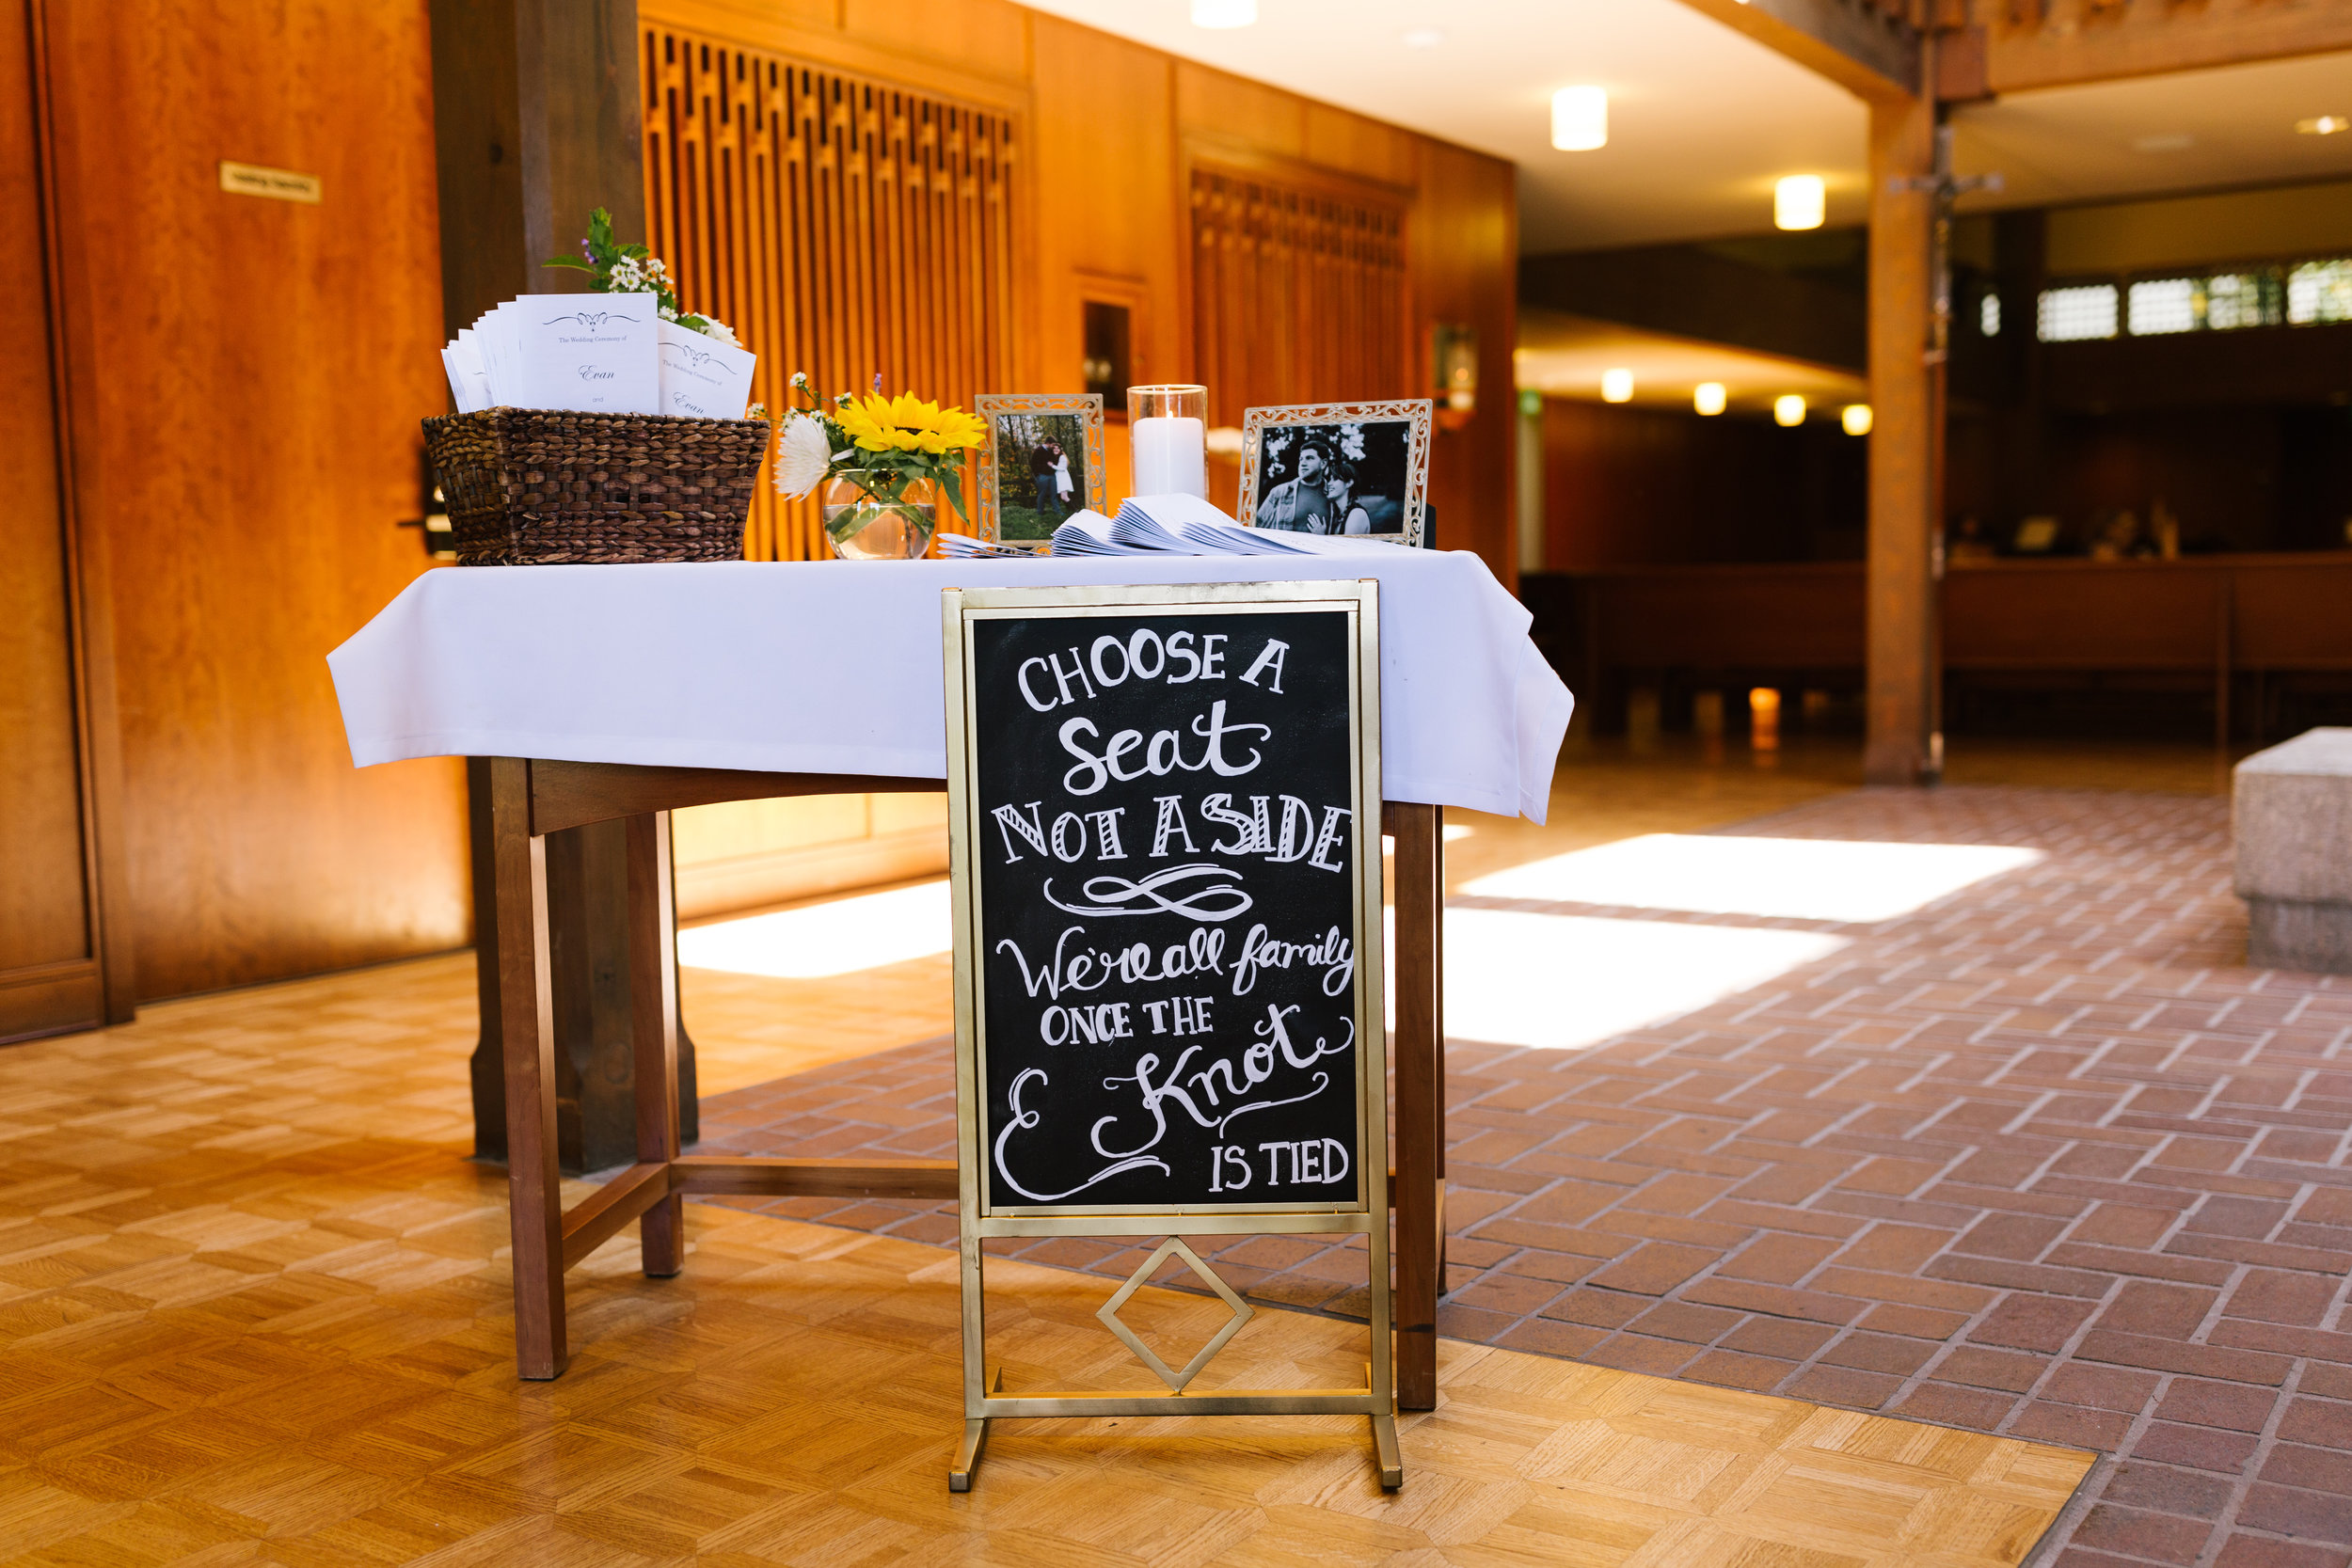 The Wedding Ceremony of
Evan
The Wedding Ceremony of
Evan
CHOOSE A
Seat
NOT A SIDE
We're all family
ONCE THE
Knot
IS TIED